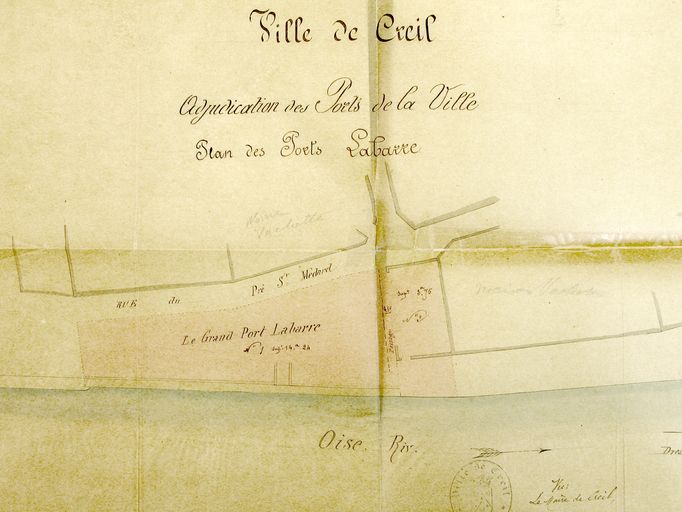 Ville de Creil
Adjudication des Ports de la Ville
Plan des Ports Labarre
RUE du Pré St Médard
Le Grand Port Labarre
N° 1
Oise Riv.
Ville de Creil
Vu:
Le Maire de Creil,